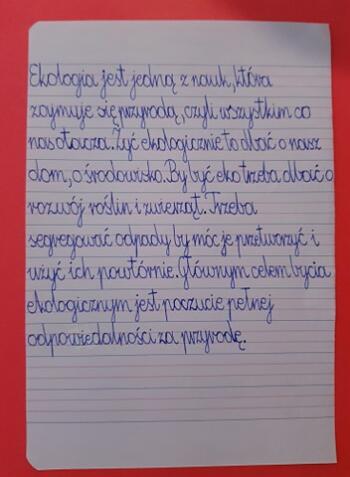 Ekologia jest jedną z nauk, która
zajmuje się przyrodą, czyli wszystkim co
nas otacza. Żyć ekologicznie to dbać o nasz
dom, o środowisko. By być eko trzeba dbać o
rozwój roślin i zwierząt. Trzeba
segregować odpady by móc je przetworzyć i
użyć ich powtórnie. Głównym celem bycia
ekologicznym jest poczucie pełnej
odpowiedalności za przyrodę.